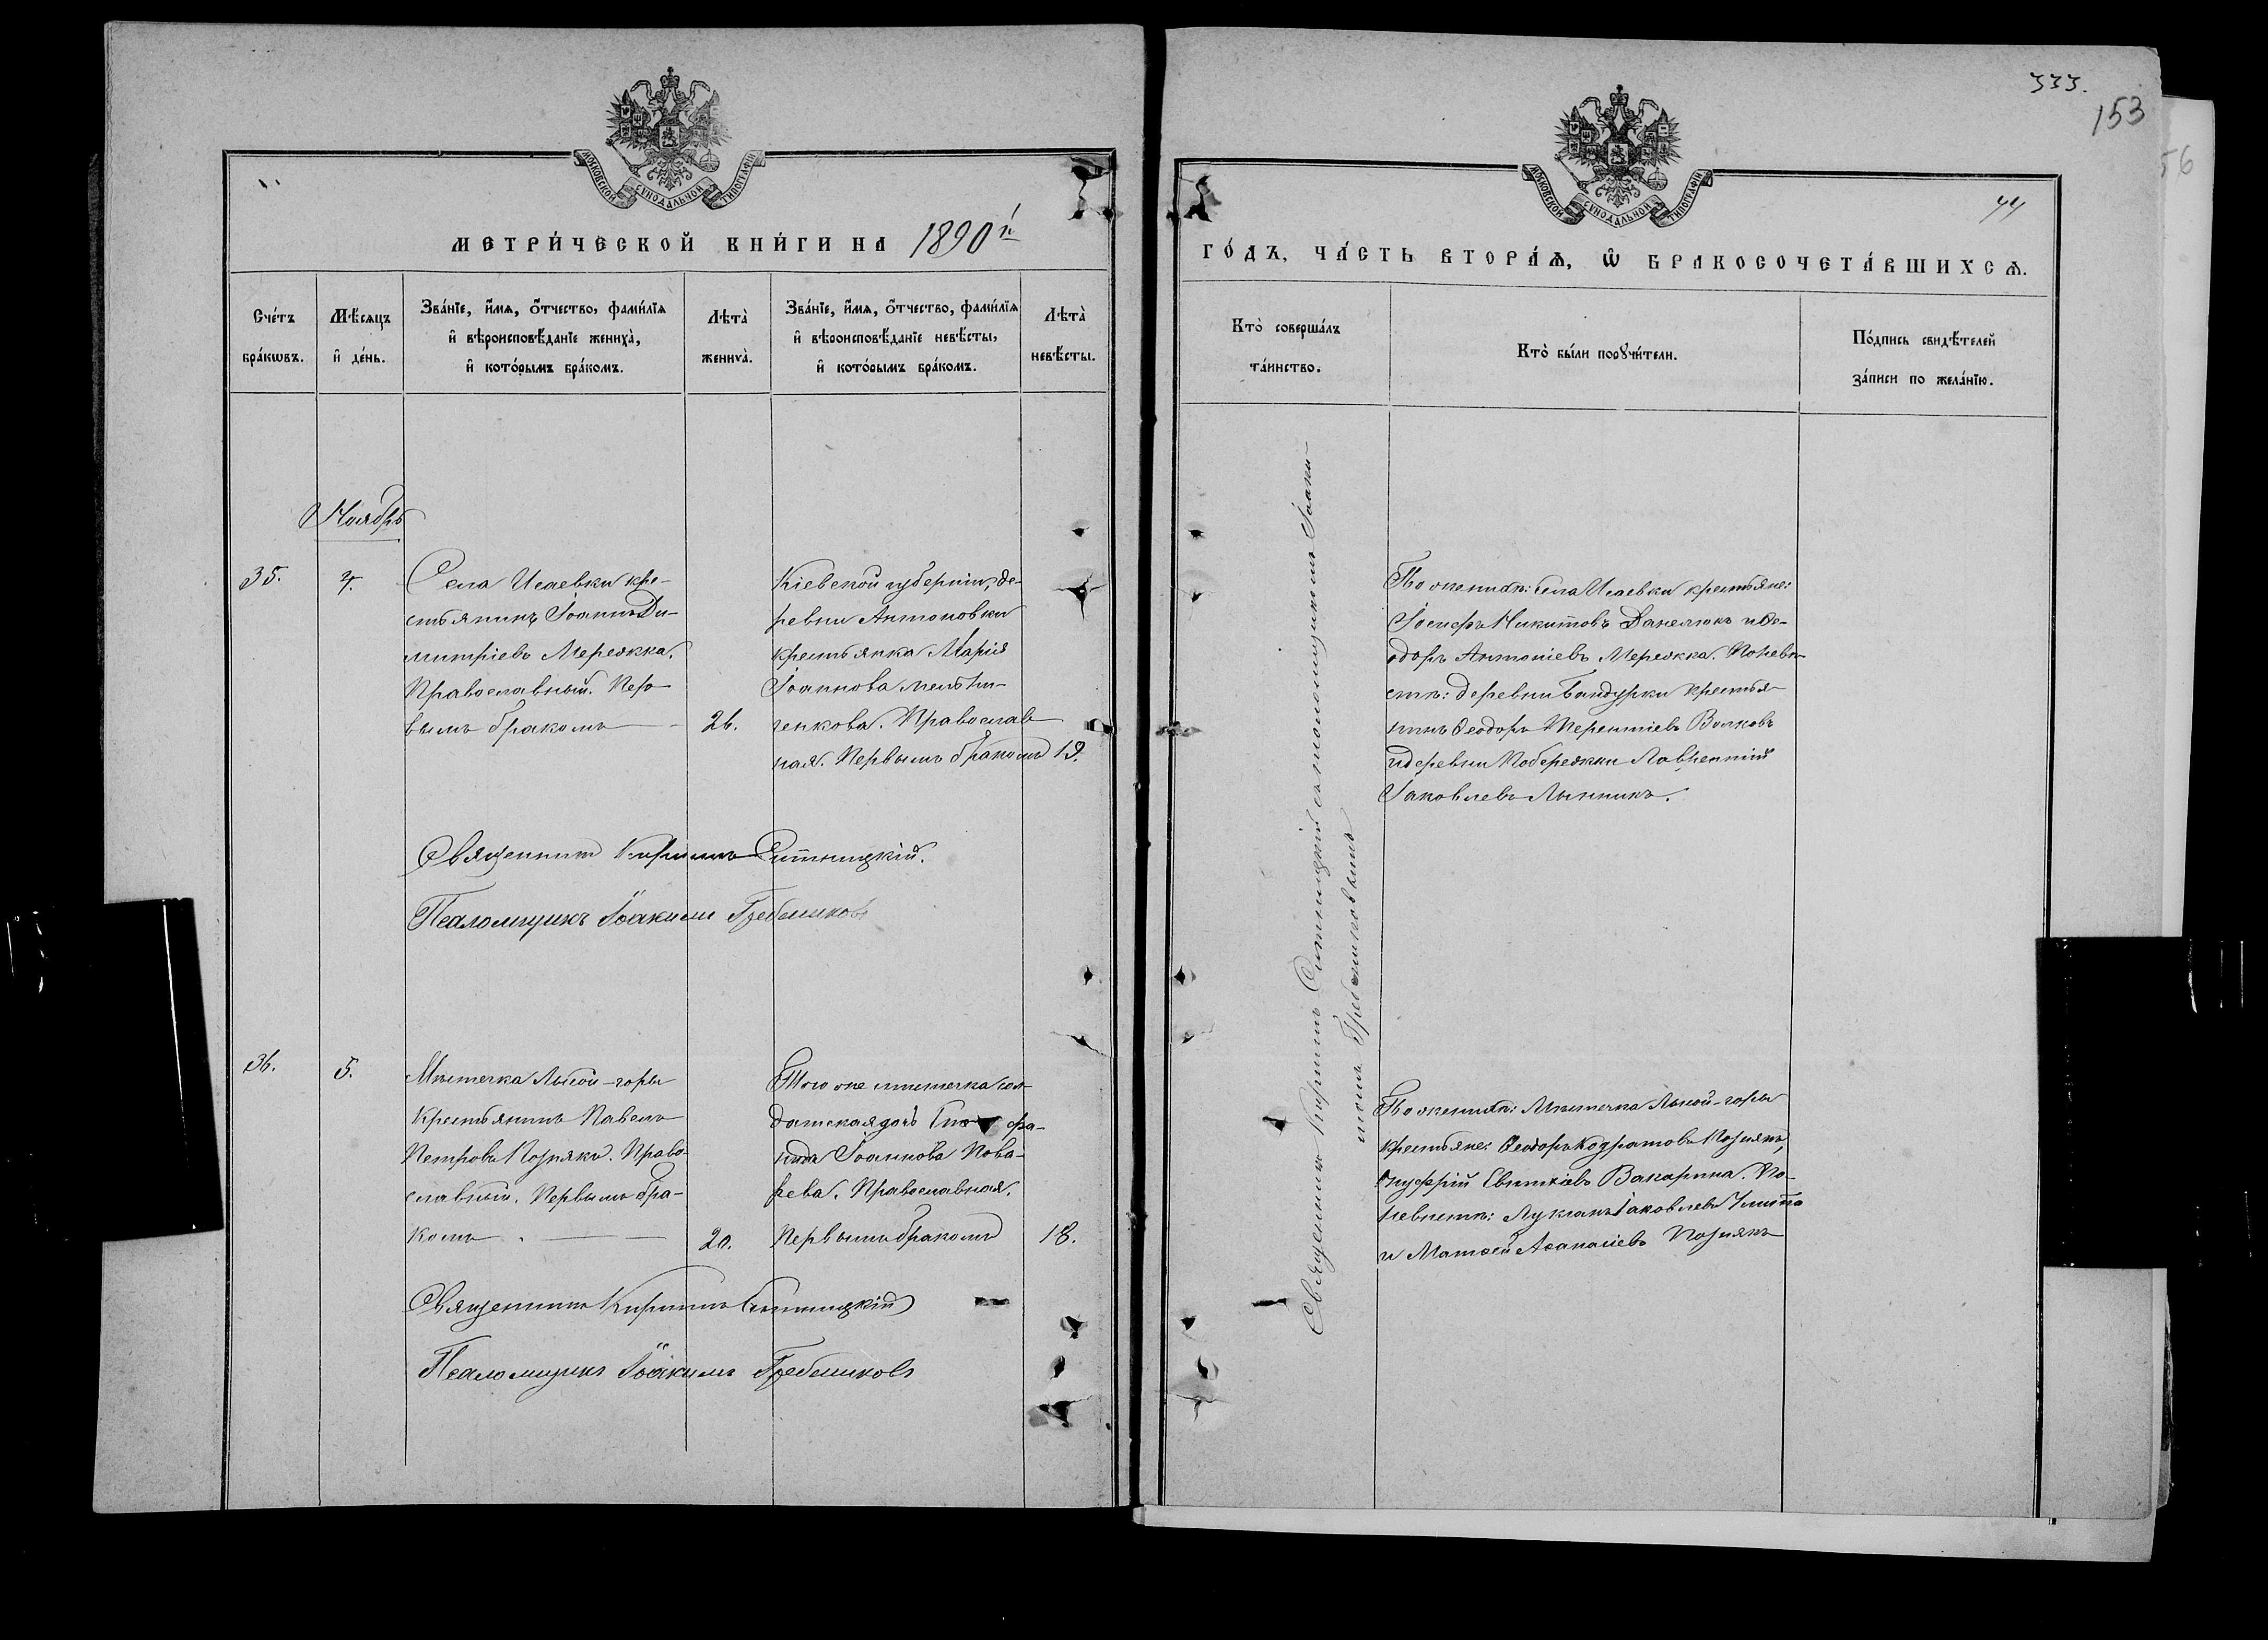 МОСКОВСКОЙ СУНОДАЛЬНОЙ ТИПОГРАФІИ
МЕТРИ́ЧЕСКОЙ КНИ́ГИ НА 1890й
Сче́тъ бра́кωвъ.
Мѣ́сяцъ и҆ де́нь.
Зва́нїе, и҆́мѧ, ѻ҆́тчество, фами́лїѧ
и҆ вѣроисповѣ́данїе жениха̀,
и҆ кото́рымъ бра́комъ.
Лѣта̀ жениха̀.
Зва́нїе, и҆́мѧ, ѻ҆́тчество, фами́лїѧ
и҆ вѣроисповѣ́данїе невѣ́сты,
и҆ кото́рымъ бра́комъ.
Лѣта̀ невѣ́сты.
Ноябрь
35.
4.
Села Исаевки кре-
стьянинъ Іоаннъ Ди-
митріевъ Мережка.
Православный. Пер-
вымъ бракомъ
26.
Кіевской губерніи, де-
ревни Антоновки
крестьянка Марія
Іоаннова Мельни-
ченкова. Православ
ная. Первымъ бракомъ
19.
Священникъ Кириллъ Ситницкій.
Псаломщикъ Іоакимъ Гребенщиковъ
36.
5.
Мѣстечка Лысой-горы
крестьянинъ Павелъ
Петровъ Познякъ. Право-
славный. Первымъ бра-
комъ
20.
Того же мѣстечка сол-
датская дочь
Іоаннова Пова-
рева. Православная.
Первымъ бракомъ
18.
Священникъ Кириллъ Ситницкій
Псаломщикъ Іоакимъ Гребенщиковъ
333.
153
56
44
МОСКОВСКОЙ СУНОДАЛЬНОЙ ТИПОГРАФІИ
ГО́ДЪ, ЧА́СТЬ ВТОРА́Ѧ, Ѽ БРАКОСОЧЕТА́ВШИХСѦ.
Кто̀ соверша́лъ
та́инство.
Кто̀ бы́ли порꙋчи́тели.
По́дпись свидѣ́телей
за́писи по жела́нїю.
Священникъ Кириллъ Ситницкій съ псаломщикомъ Іоаки-
момъ Гребенщиковымъ
По женихѣ: села Исаевки крестьяне:
Іосифъ Никитовъ Данелюкъ и Ѳе-
одоръ Антоніевъ Мережка. По невѣ-
стѣ: деревни Бандурки крестья-
нинъ Ѳеодоръ Терентіевъ Волковъ
и деревни Побережки Лаврентій
Іаковлевъ Линникъ.
По женихѣ: Мѣстечка Лысой-горы
крестьяне: Ѳеодоръ Кодратовъ Познякъ,
Онуфрій Вакарина. По
невѣстѣ: Лукіанъ Іаковлевъ
и Матѳей Аѳанасіевъ Познякъ